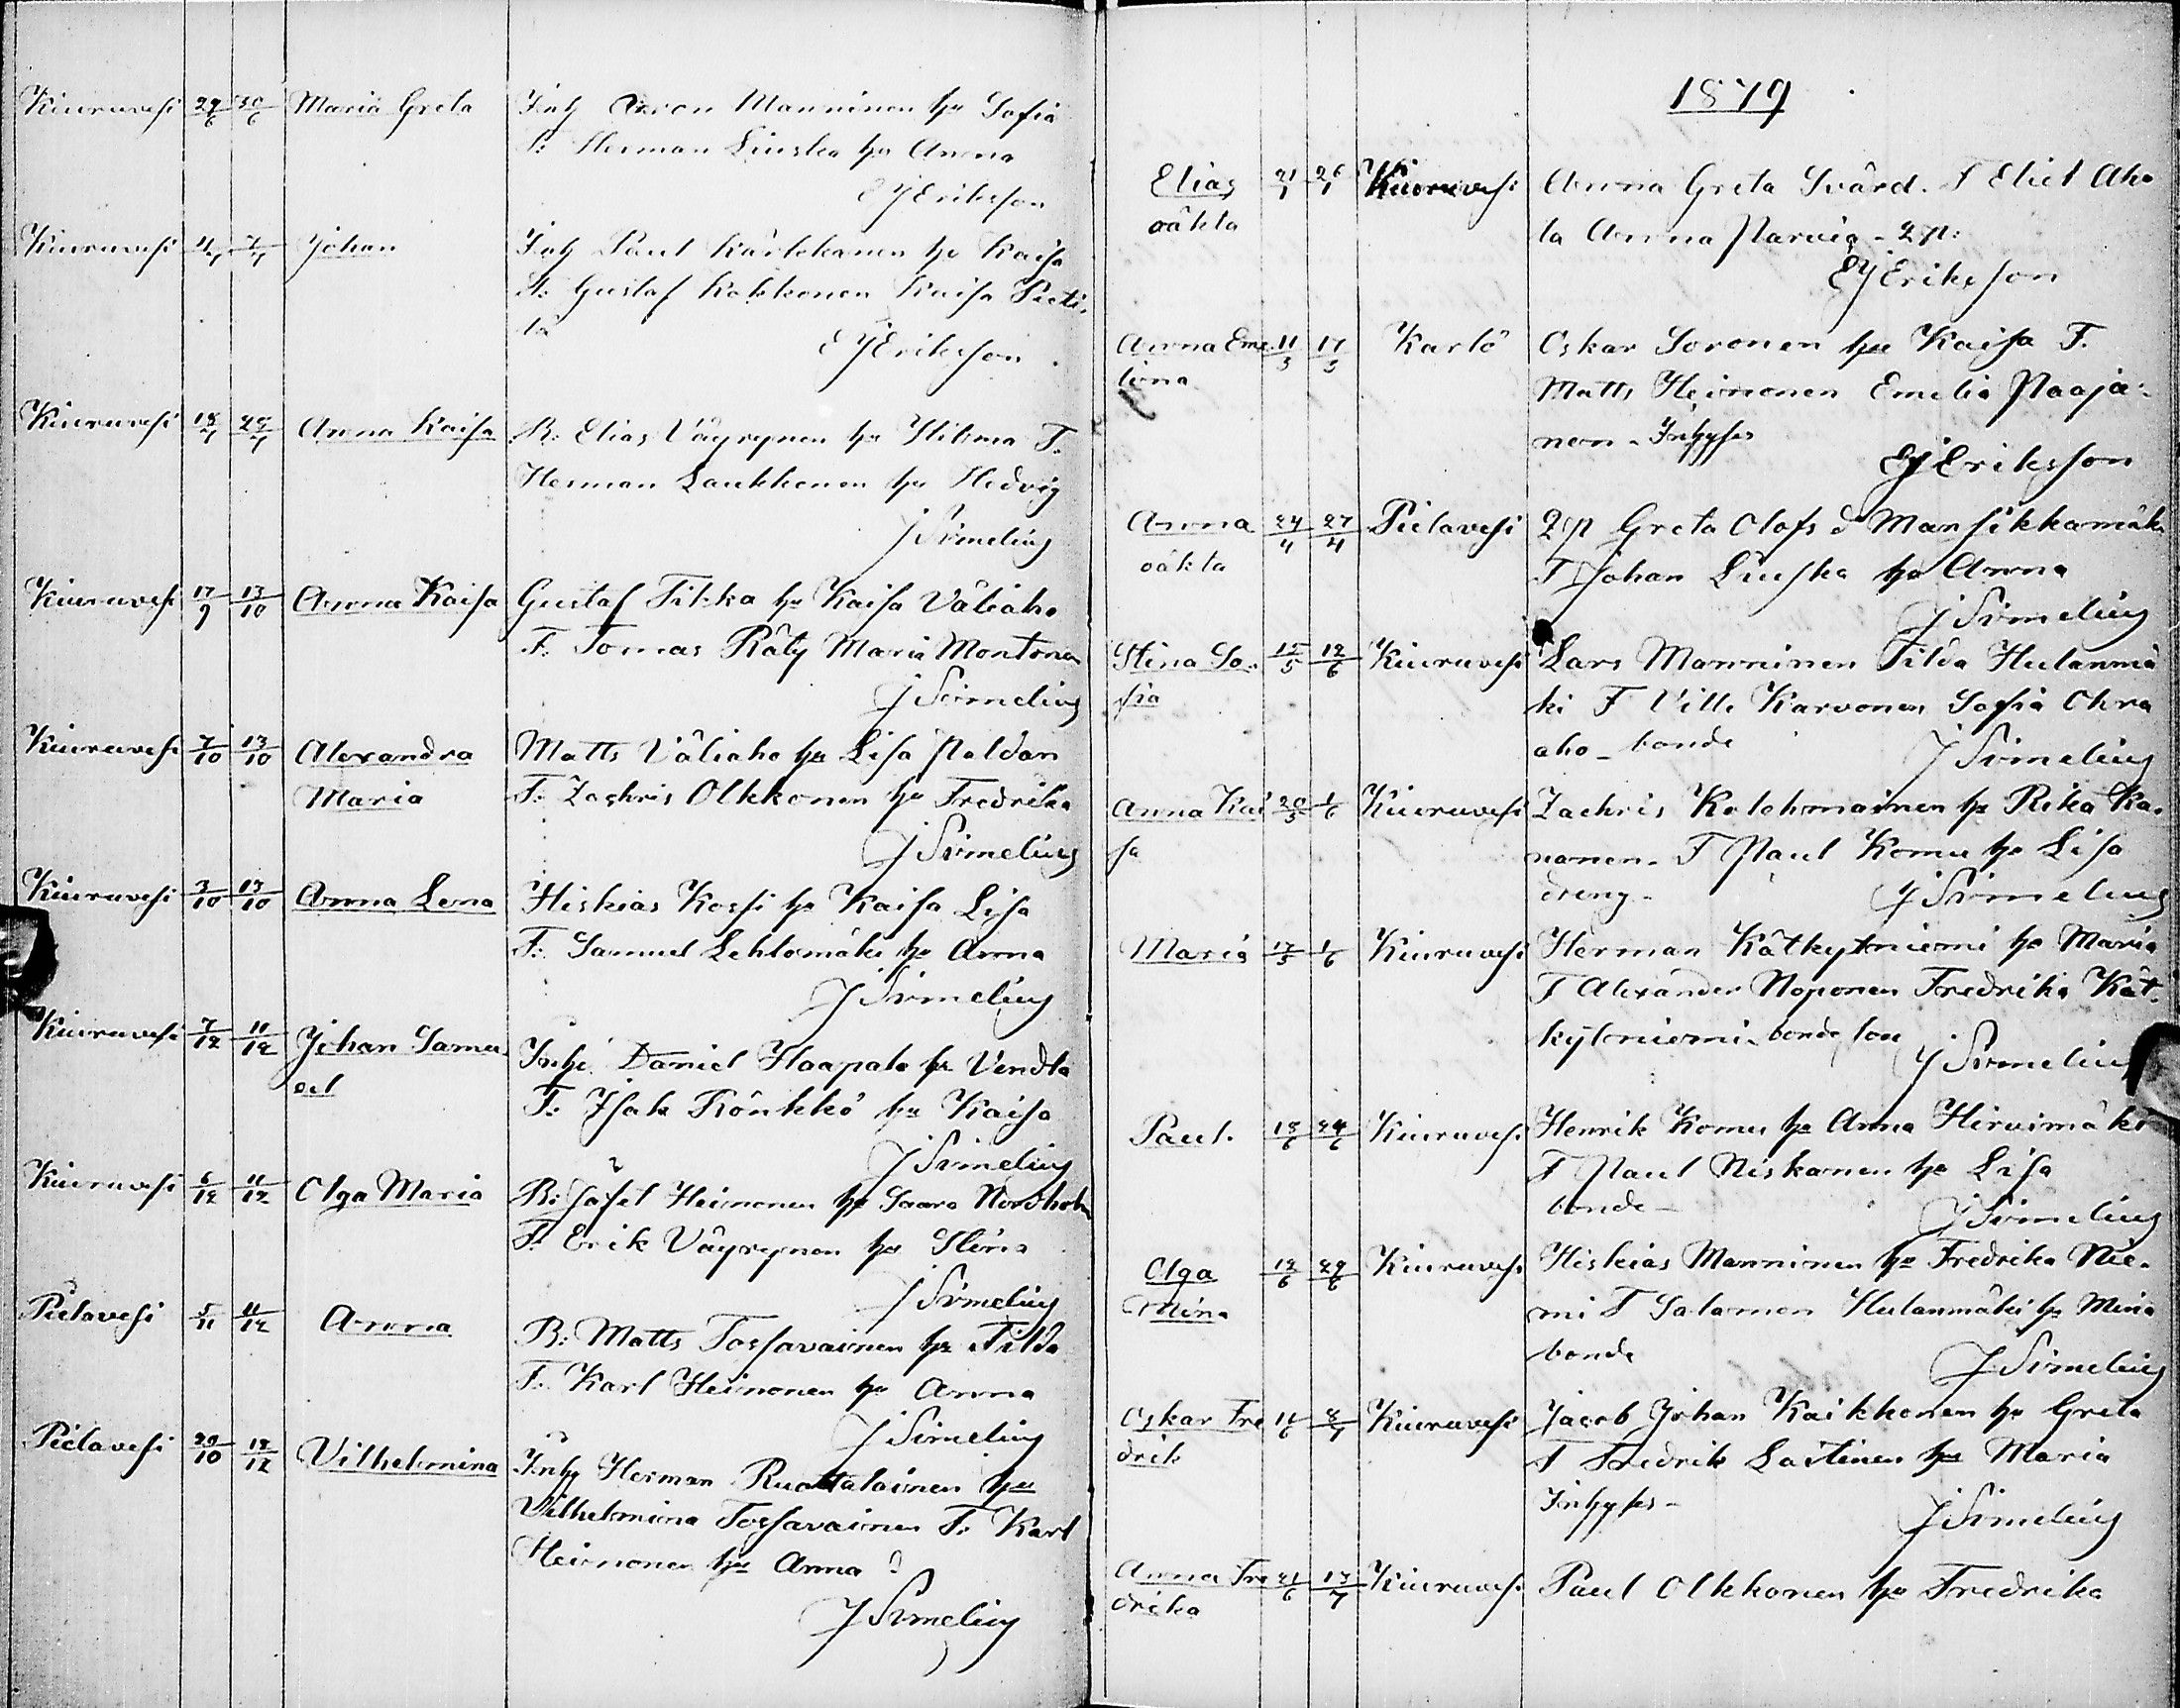 Kiuruvesi 29/6 30/6 Maria Greta Inh Aron Manninen hu Sofia
F: Herman Liuska hu Anna
EJEriksson
Kiuruvesi 4/7 7/7 Johan Inh Paul Kärkkänen hu Kaisa
F: Gustaf Kokkonen Kaisa Pieti-
lä EJEriksson
Kiuruvesi 18/7 29/7 Anna Kaisa B: Elias Väyrynen hu Hilma F:
Herman Laukkonen hu Hedvig
J Simelius
Kiuruvesi 17/9 13/10 Anna Kaisa Gustaf Tikka hu Kaisa Väliaho
F: Tomas Räty Maria Montonen
J Simelius
Kiuruvesi 7/10 13/10 Alexandra Matts Väliaho hu Lisa Paldan
Maria F: Zachris Olkkonen hu Fredrika
J Simelius
Kiuruvesi 3/10 13/10 Anna Lena Hiskias Kossi hu Kaisa Lisa
F: Samuel Lehtomäki hu Anna
J Simelius
Kiuruvesi 7/12 11/12 Johan Samu- Inh: Daniel Haapala hu Vendla
el F: Isak Rönkkö hu Kaisa
J Simelius
Kiuruvesi 6/12 11/12 Olga Maria B: Josef Heinonen hu Saara Nordholm
F: Erik Väyrynen hu Stina
J Simelius
Pielavesi 5/11 11/12 Anna B: Matts Tossavainen hu Tilda
F: Karl Heinonen hu Anna
J Simelius
Pielavesi 29/10 12/12 Vilhelmina Inh Herman Ruotsalainen hu
Vilhelmina Tossavainen F: Karl
Heinonen hu Anna
J Simelius
1879
Elias 21/1 26/1 Kiuruvesi Anna Greta Svärd. F Eliel Aho
oäkta la Anna Parvia - 2 p:
EJEriksson
Anna Eme- 11/3 17/3 Karlö Oskar Soronen hu Kaisa F.
lina Matts Heinonen Emelia Paaja-
nen - Inhyses
EJEriksson
Anna 24/4 27/4 Pielavesi 2 p Greta Olofs d Mansikkamäki
oäkta F Johan Liuska hu Anna
J Simelius
Stina So- 15/5 12/6 Kiuruvesi Lars Manninen Tilda Hulanmä
fia ki F Ville Karvonen Sofia Ohra
aho - bonde J Simelius
Anna Kai 20/5 1/6 Kiuruvesi Zachris Kolehmainen hu Rika Ka-
sa nanen - F Paul Komu hu Lisa
dreng - J Simelius
Maria 17/5 1/6 Kiuruvesi Herman Kätkytniemi hu Maria
F Alexander Noponen Fredrika Kät-
kytniemi - bonde son J Simelius
Paul. 18/6 24/6 Kiuruvesi Henrik Komu hu Anna Hirvimäki
F Paul Niskanen hu Lisa
bonde - J Simelius
Olga 12/6 29/6 Kiuruvesi Hiskias Manninen hu Fredrika Nie-
Mina mi F Salomon Hulanmäki hu Mina
bonde J Simelius
Oskar Fre 16/6 8/7 Kiuruvesi Jacob Johan Kaikkonen hu Greta
drik F Fredrik Laitinen hu Maria
Inhyses - J Simelius
Anna Fre 21/6 13/7 Kiuruvesi Paul Olkkonen hu Fredrika
drika